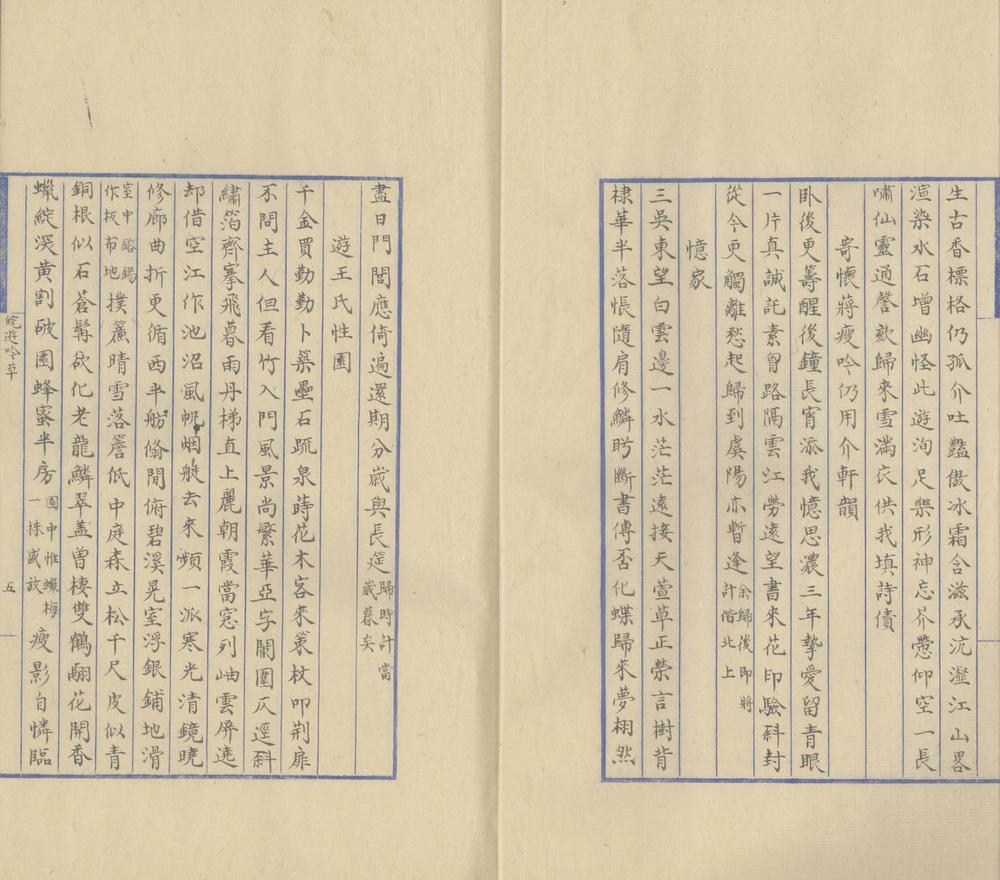 生古香標格仍孤介吐豔傲冰霜含滋承沆瀣江山畧
渲染水石增幽怪此遊洵足樂形神忘芥蔕仰空一長
嘯仙靈通謦欬歸來雪滿衣供我填詩債
寄懷蔣瘦吟仍用介軒韻
卧後更籌醒後鐘長宵添我憶思濃三年摯愛留青眼
一片真誠託素胷路隔雲江勞遠望書來花印驗斜封
從今更觸離愁起歸到虞陽亦暫逢余歸後即將計偕北上
憶家
三吳東望白雲邊一水茫茫遠接天萱草正榮言樹背
棣華半落悵隨肩修鱗盻斷書傳否化蝶歸來夢栩然
盡日門閭應倚遍還期分歲與長筵歸時計當歲暮矣
遊王氏性園
千金買勤勤卜築壘石疏泉蒔花木客來策杖叩荆扉
不問主人但看竹入門風景尚繁華亞字闌圍仄逕斜
繡箔齊搴飛暮雨丹梯直上麗朝霞當窓列岫雲屏遶
却借空江作池沼風帆烟艇去來頻一派寒光清鏡曉
修廊曲折更循西半舫翛閒俯碧溪晃室浮銀鋪地滑
室中鎔錫作板布地撲簾晴雪落簷低中庭森立松千尺皮似青
銅根似石蒼髯欲化老龍鱗翠蓋曾棲雙鶴翮花開香
蠟綻深黄割破園蜂蜜半房園中惟蠟梅一株盛放瘦影自憐臨
皖遊吟草
五